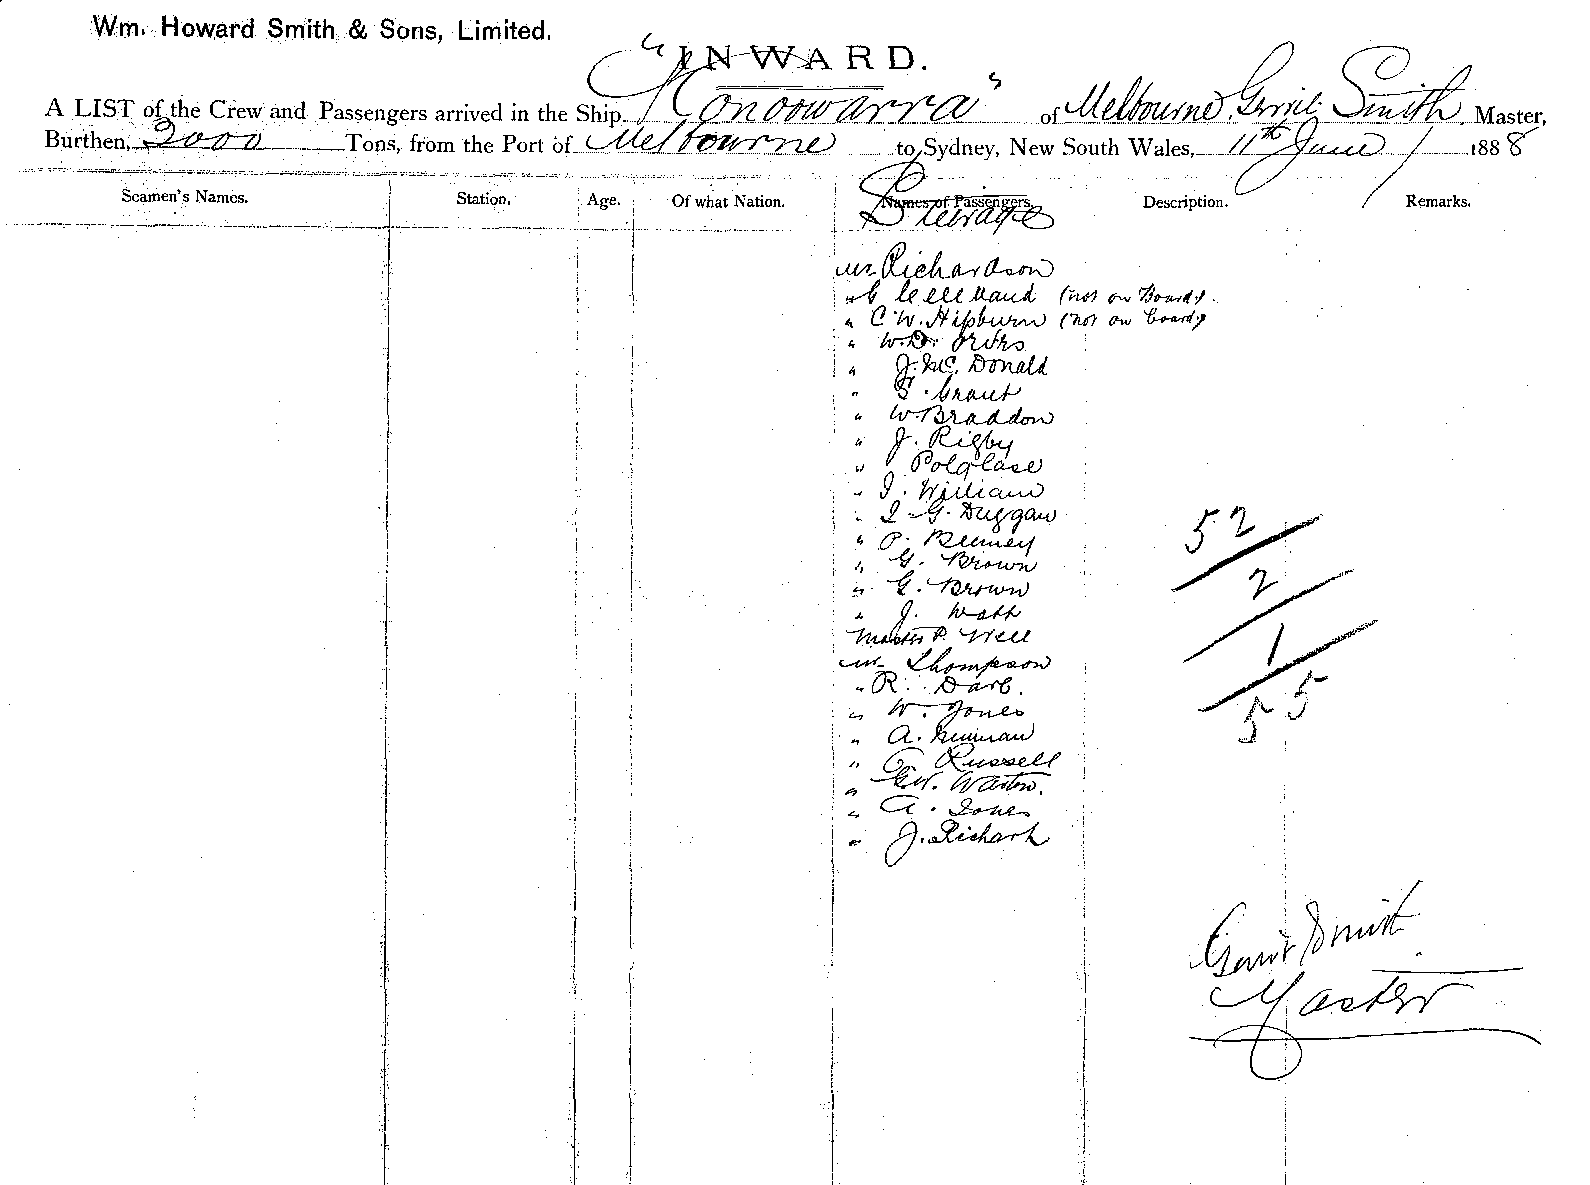 Wm. Howard Smith & Sons, Limited.
INWARD.
A LIST of the Crew and Passengers arrived in the Ship "Konoowarra" of Melbourne, Smith Master,
Burthen, 2000 Tons, from the Port of Melbourne to Sydney, New South Wales, 11th June 1888
Seamen's Names. Station. Age. Of what Nation. Names of Passengers. Description. Remarks.
Steerage
Mr Richardson
" (not on Board)
" C. W. Hepburn (not on board)
" W.D.
" J. Mc. Donald
" Grant
" W Braddon
" J. Rigby
" Polglase
" J. William
" J G. Duggan
" P.
" G. Brown
" G. Brown
" J. Watt
Master P. Well
Mr Thompson
" R. Darb.
" W. Jones
" A. Newman
" Russell
" Waston.
" A. Jones
" J. Richard
52
2
1
55
Smith
Master